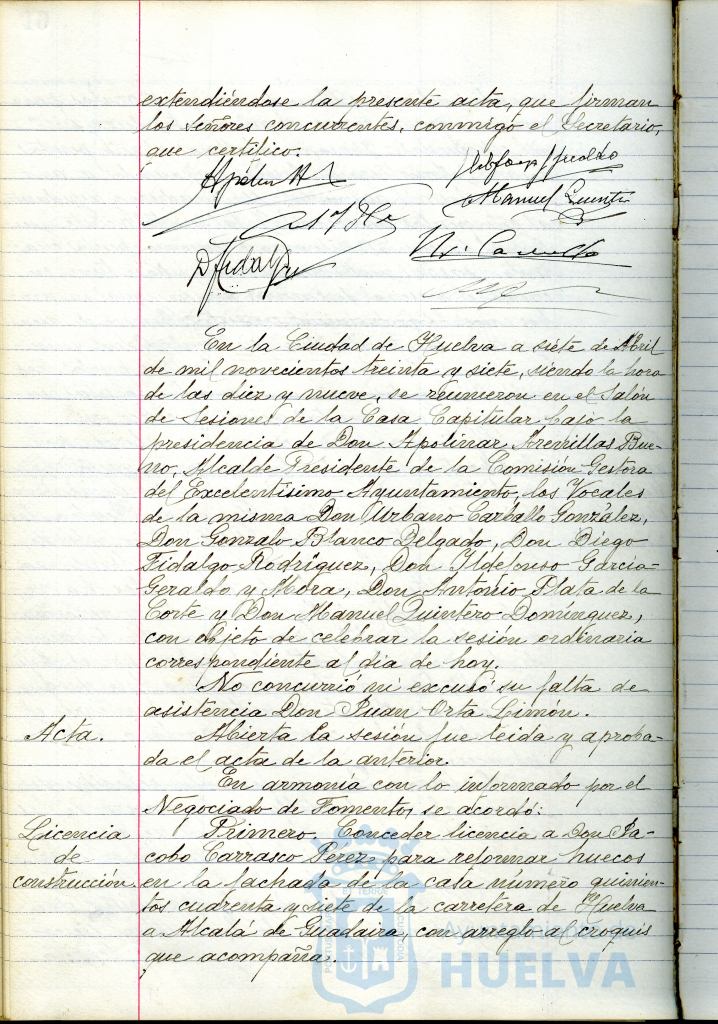 extendiéndose la presente acta, que firman
los Señores concurrentes, conmigo el Secretario,
que certifico.
Manuel Quintero
D Fidalgo
En la Ciudad de Huelva a siete de Abril
de mil novecientos treinta y siete, siendo la hora
de las diez y nueve, se reunieron en el Salón
de Sesiones de la Casa Capitular bajo la
presidencia de Don Apolinar Arenillas Bue-
no, Alcalde Presidente de la Comisión Gestora
del Excelentísimo Ayuntamiento, los Vocales
de la misma Don Urbano Carballo González,
Don Gonzalo Blanco Delgado, Don Diego
Fidalgo Rodríguez, Don Ildefonso García-
Geraldo y Mora, Don Antonio Plata de la
Corte y Don Manuel Quintero Domínguez,
con objeto de celebrar la sesión ordinaria
correspondiente al día de hoy.
No concurrió ni excusó su falta de
asistencia Don Juan Orta Limón.
Acta. Abierta la sesión fue leída y aproba-
da el acta de la anterior.
En armonía con lo informado por el
Negociado de Fomento, se acordó:
Licencia de construcción. Primero. Conceder licencia a Don Ja-
cobo Carrasco Pérez para reformar huecos
en la fachada de la casa número quinien-
tos cuarenta y siete de la carretera de Huelva
a Alcalá de Guadaira, con arreglo al croquis
que acompaña.
HUELVA